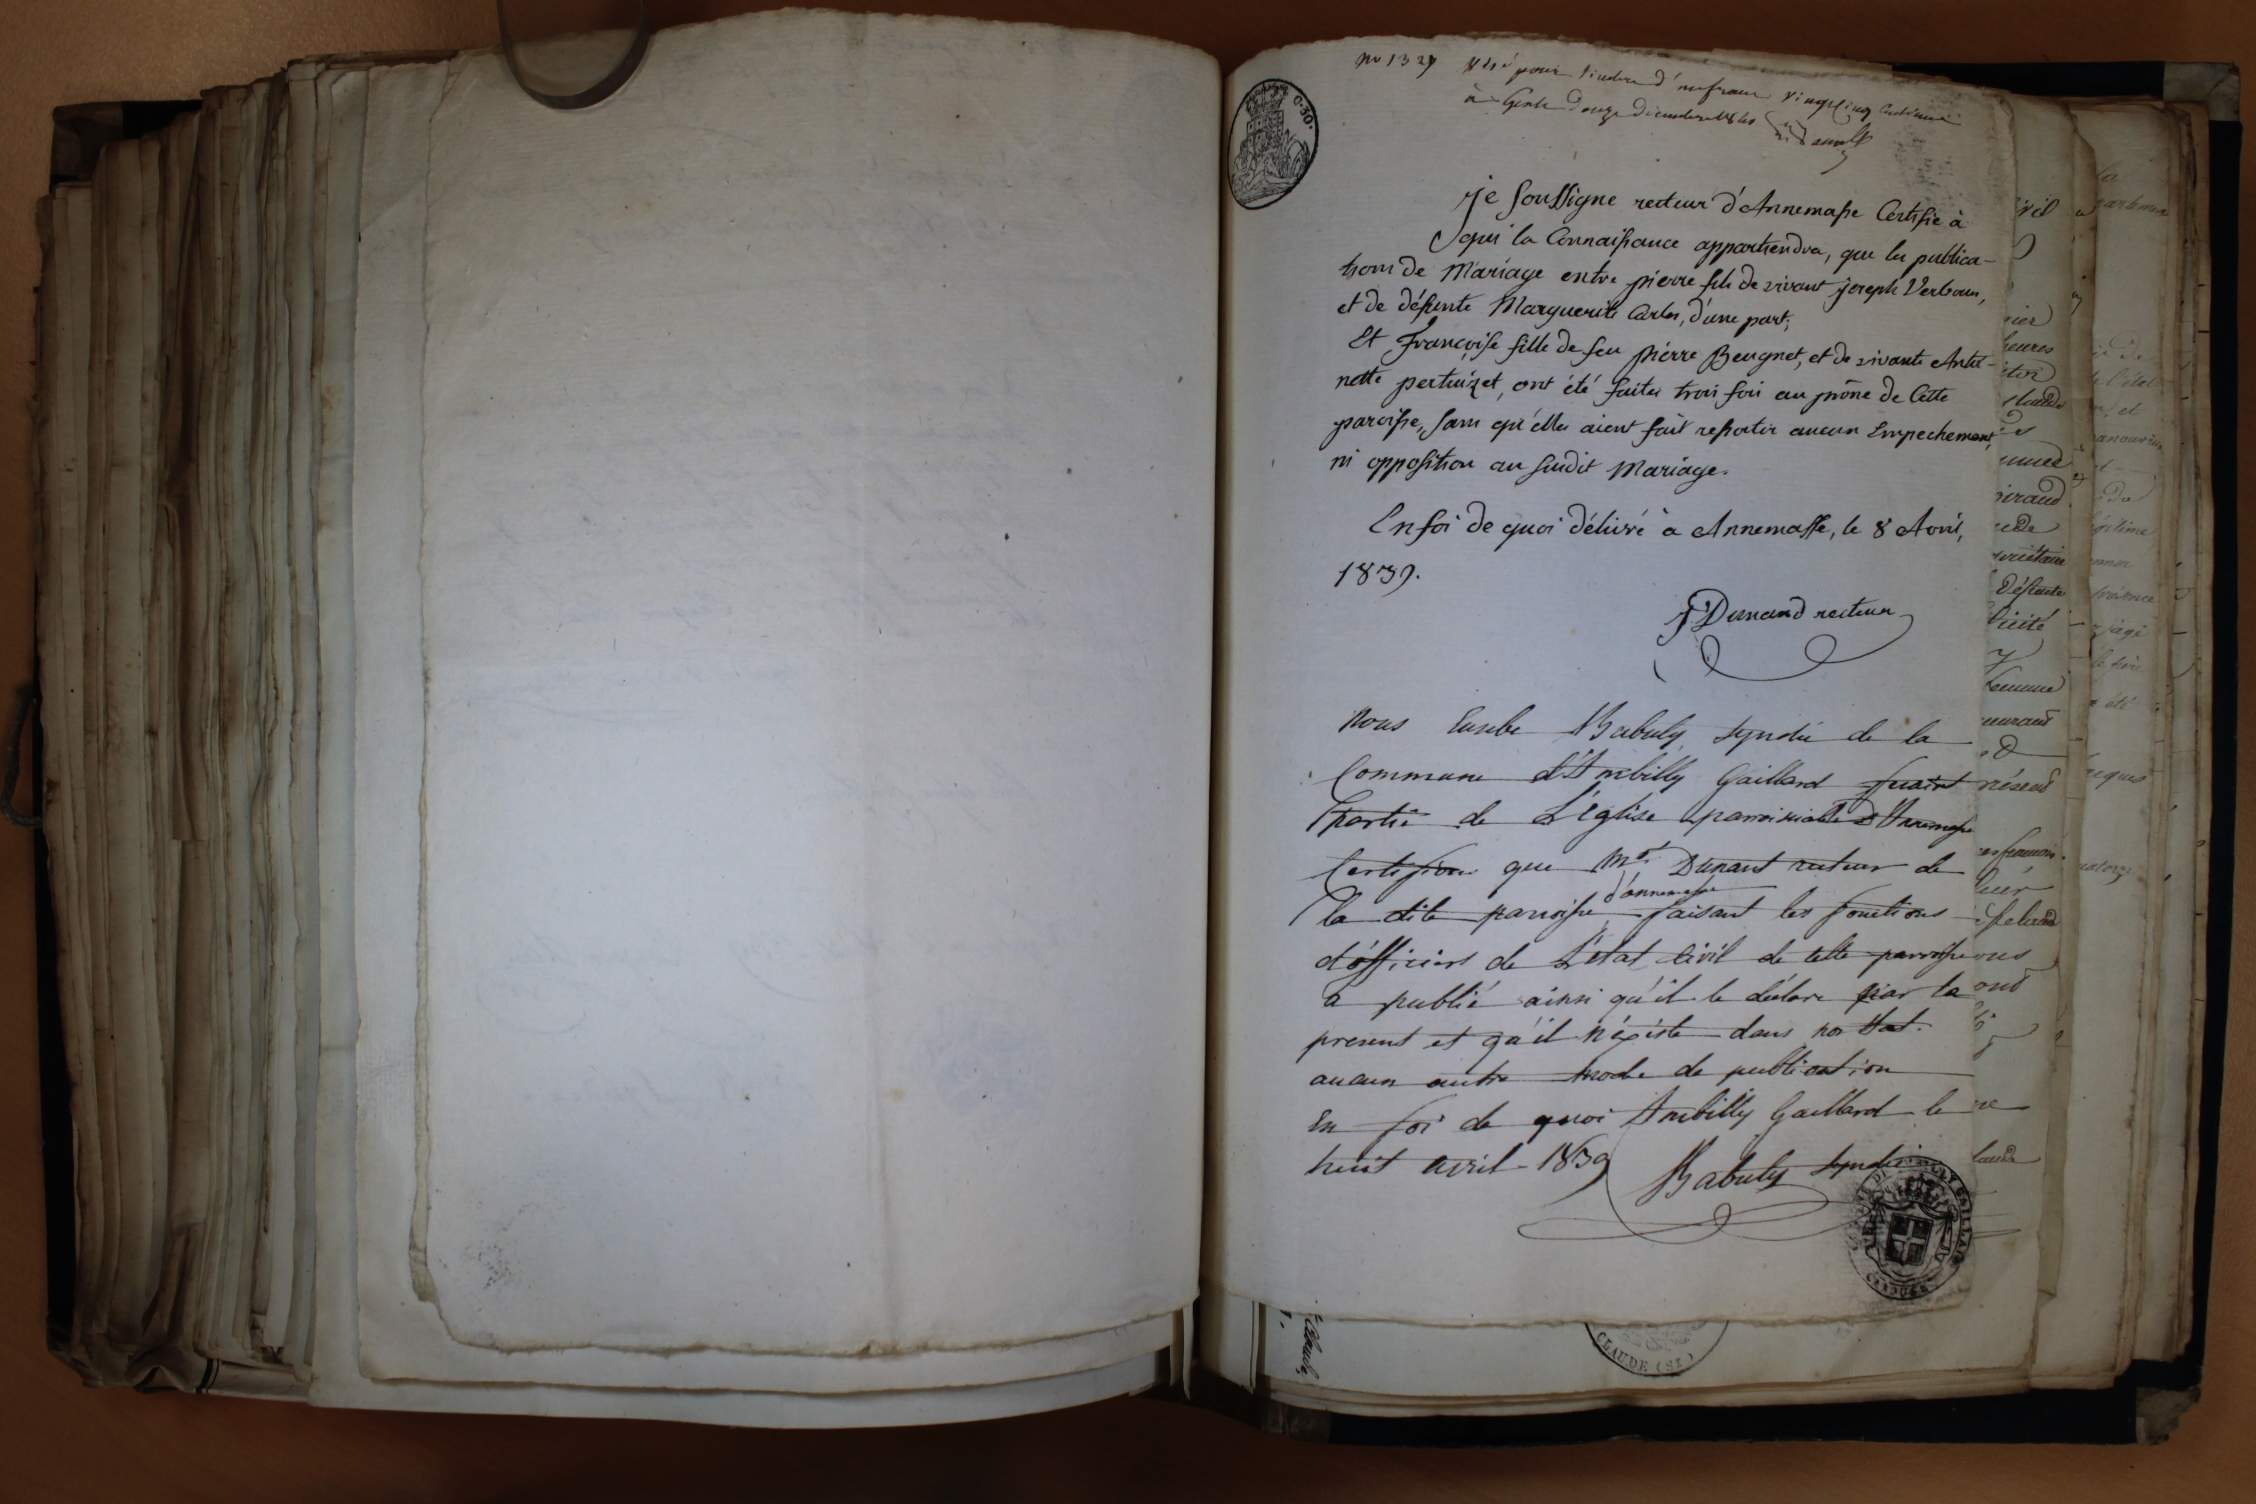 No 1327 Visé pour timbre d'un franc vingt cinq centimes
à Genève douze décembre 1840
0.50.
je soussigne recteur d'Annemasse Certifie à
qui la Connaissance appartiendra, que les publica-
tions de Mariage entre pierre fils de vivant joseph Verboux,
et de défunte Marguerite Carlos, d'une part;
Et Françoise fille de feu pierre Beugnet, et de vivante Antoi-
nette pertuizet, ont été faites trois fois au prône de Cette
paroisse, sans qu'elles aient fait ressortir aucun Empechement,
ni opposition au susdit Mariage.
En foi de quoi délivré à Annemasse, le 8 Avril,
1839.
J Dunand recteur
Nous Eusebe Babuty syndic de la
Commune d'Ambilly Gaillard faisant
partie de L'église parroissiale d'Annemasse
Certifions que Mr. Dunant recteur de
d'annemasse
la dite parroisse faisant les fonctions
d'officiers de L'état Civil de cette parroisse
a publié ainsi qu'il le déclare par la
present et qu'il n'éxiste dans nos Etat.
aucun autre mode de publication
En foi de quoi Ambilly Gaillard le
huit avril 1839
Babuty syndic
CLAUDE (ST.)